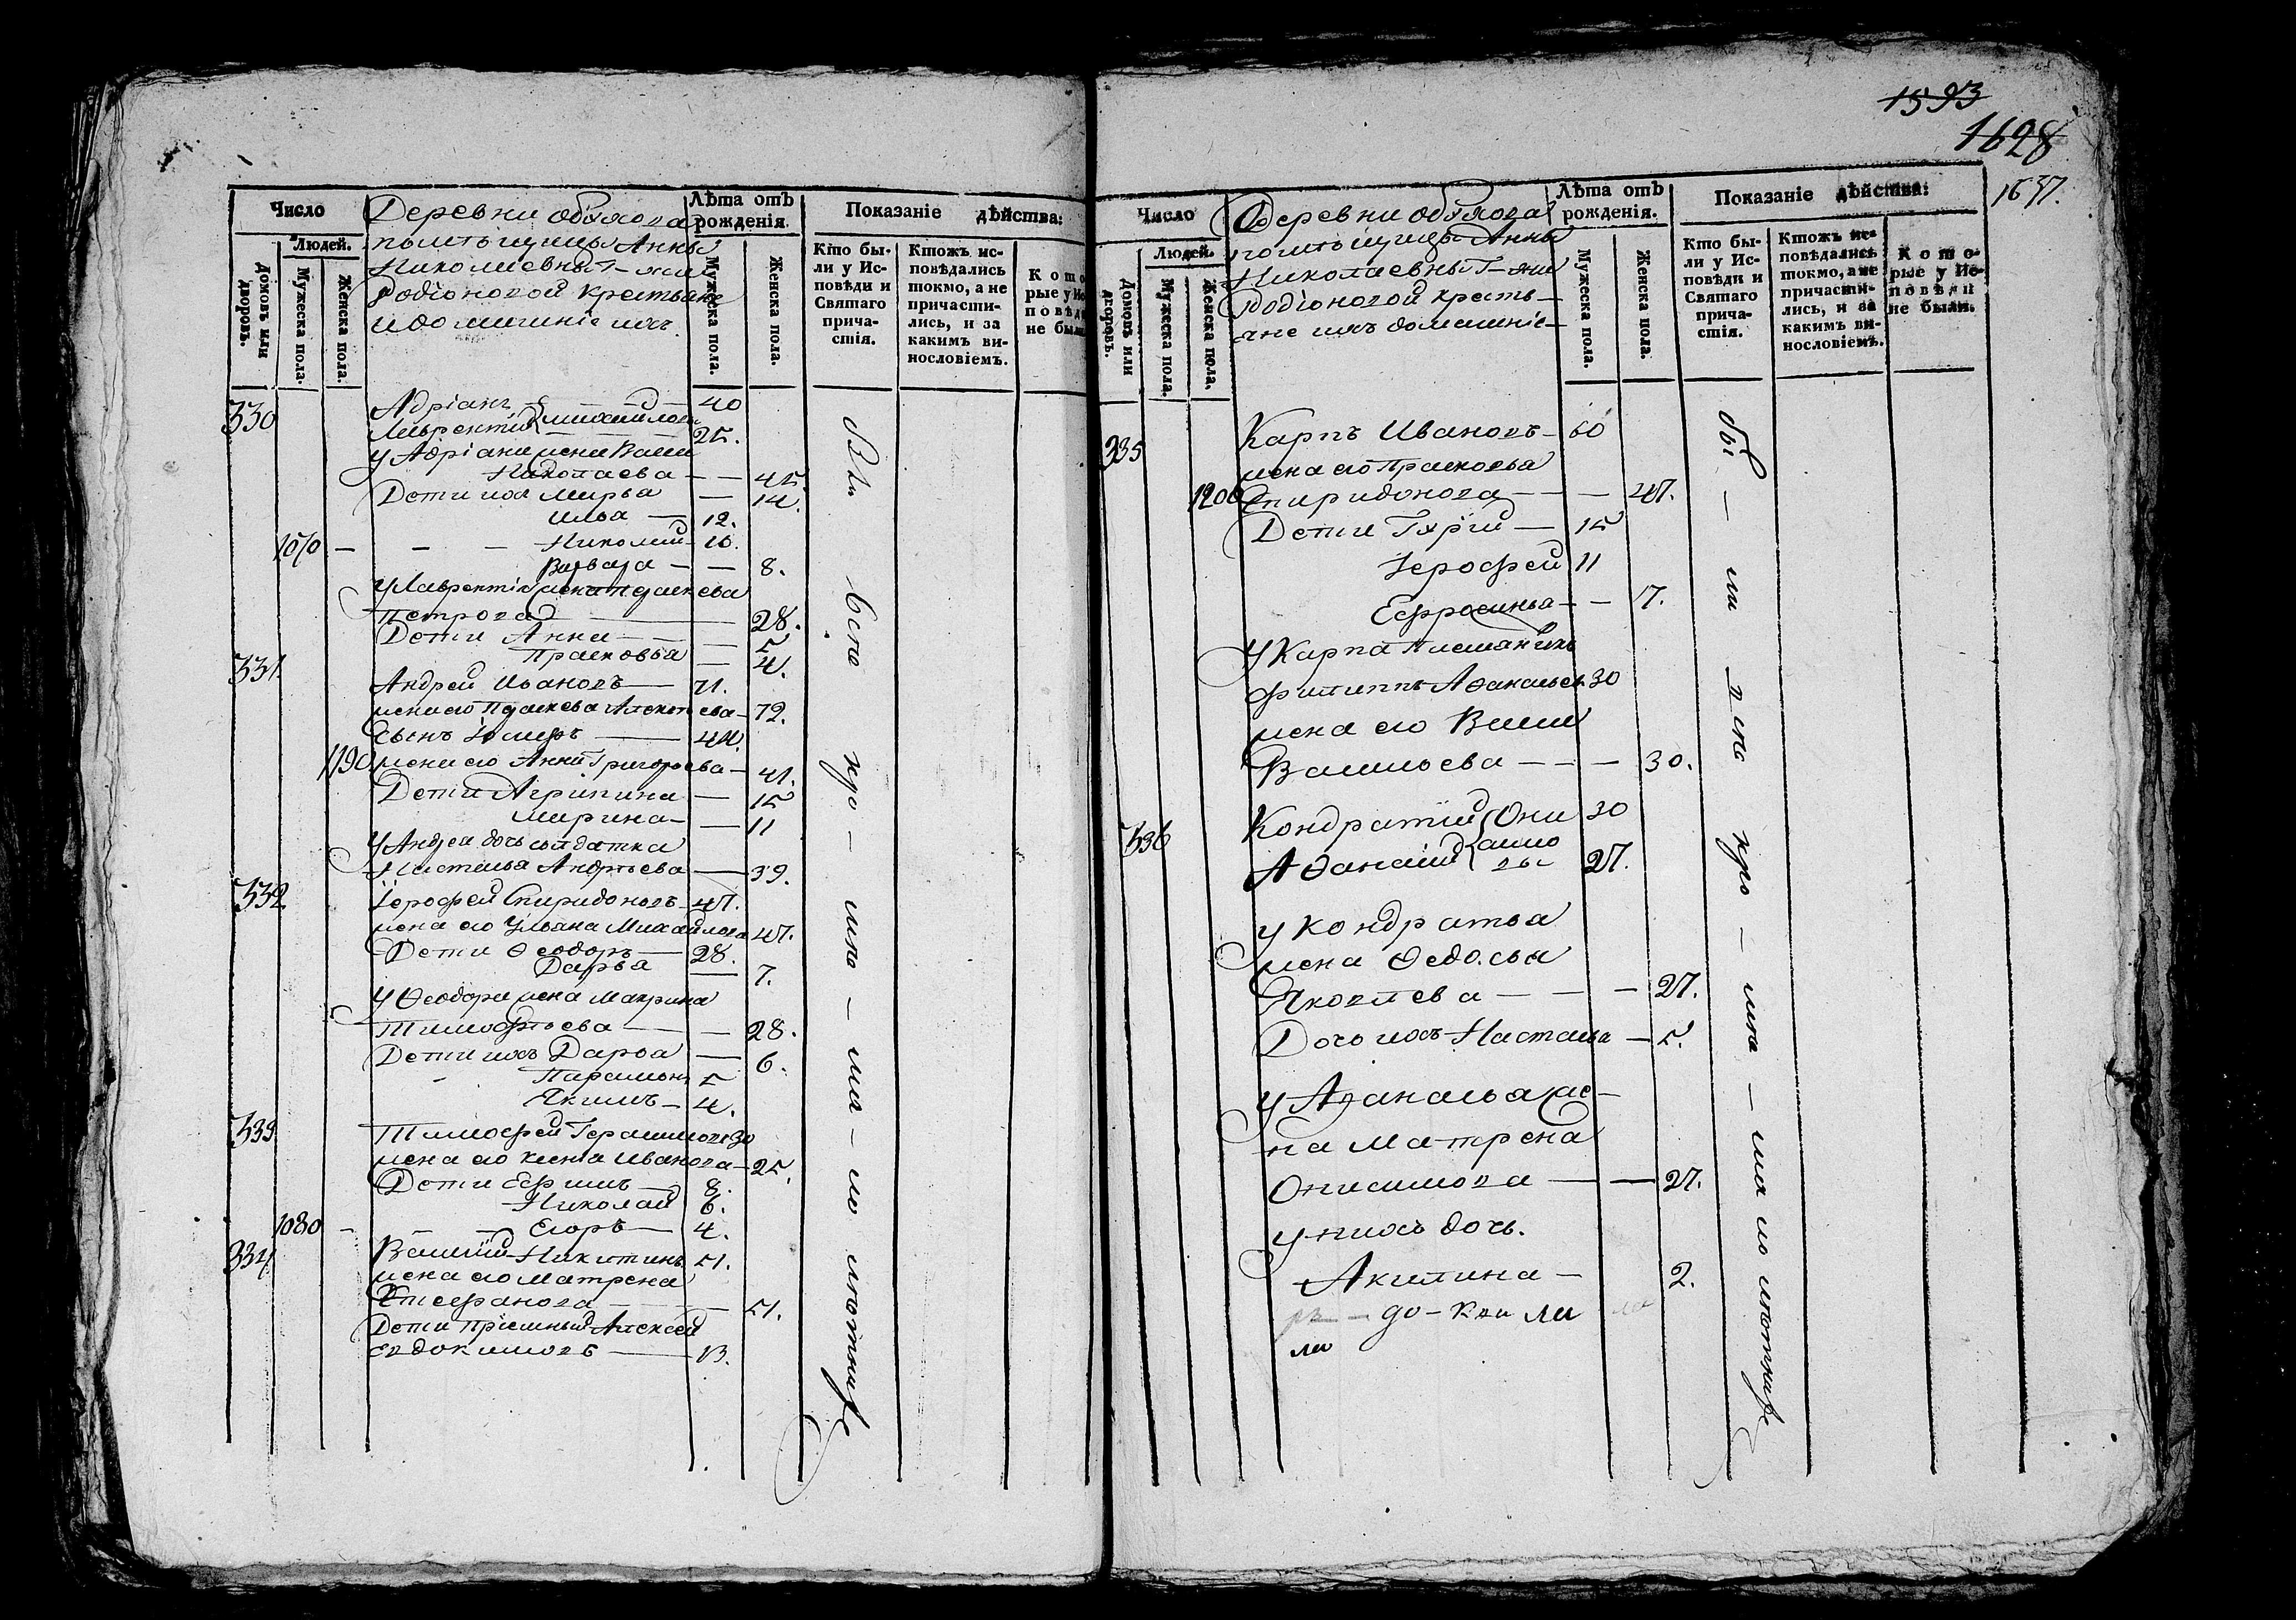 1593
1628
1637.
Число
Людей.
Домовъ или дворовъ.
Мужеска пола.
Женска пола.
Деревни
помѣщицы Анны
Николаевны Г-жи
Родіоновой крестьяне
и домашніе ихъ.
Лѣта отъ рожденія.
Мужеска пола.
Женска пола.
Показаніе дѣйства:
Кто были у Исповѣди и Святаго причастія.
Ктожъ исповѣдались токмо, а не причастились, и за какимъ винословіемъ.
Которые у Исповѣди не были.
330 Адріанъ 40
Лаврентій Михайловы 25.
у Адріана жена
Николаева 45.
Дети ихъ Марѳа 14.
Илья 12.
1070 Николай 10.
Варвара 8.
у Лаврентія жена Прасковья
Петрова 28.
Дети Анна 5
Прасковья 4.
331. Андрей Ивановъ 71.
жена его Прасковья Алексѣева 72.
сынъ 44.
1190 жена его Анна Григорьева 41.
Дети Агрипина 15
Марина 11
у Андрея дочь солдатка
Настасья Андрѣева 39.
332 Іерофей Спиридоновъ 47.
жена его Ульяна Михайлова 47.
Дети Ѳеодоръ 28.
Дарья 7.
у Ѳеодора жена Макрина
Тимофѣева 28.
Дети ихъ Дарья 6.
Парамонъ 5
Якимъ 4.
333 Тимофей Герасимовъ 30
жена его Ксенія Иванова 25.
Дети Ефимъ 8.
Николай 6.
1080 Егоръ 4.
334 Василій Никитинъ 51.
жена его Матрена
Стефанова 51.
Дети пріемный Алексей
Евдокимовъ 13.
Число
Людей.
Домовъ или дворовъ.
Мужеска пола.
Женска пола.
Деревни
помѣщицы Анны
Николаевны Г-жи
Родіоновой кресть-
яне ихъ домашніе
Лѣта отъ рожденія.
Мужеска пола.
Женска пола.
Показаніе дѣйства:
Кто были у Исповѣди и Святаго причастія.
Ктожъ исповѣдались токмо, а не причастились, и за какимъ винословіемъ.
Которые у Исповѣди не были.
335 Карпъ Ивановъ 60
жена его Прасковья
1200 Спиридонова 47.
Дети Гурій 15
Іерофей 11
Ефросинья 7.
у Карпа племянникъ
Филиппъ Аѳанасьевъ 30
жена его
Васильева 30.
336 Кондратій Они 30
Аѳанасій симо вы 27.
у Кондратья
жена Ѳедосья
Яковлева 27.
Дочь ихъ Настасья 5.
у Аѳанасья же-
на Матрена
Онисимова 27.
у нихъ дочь.
Акилина 2.